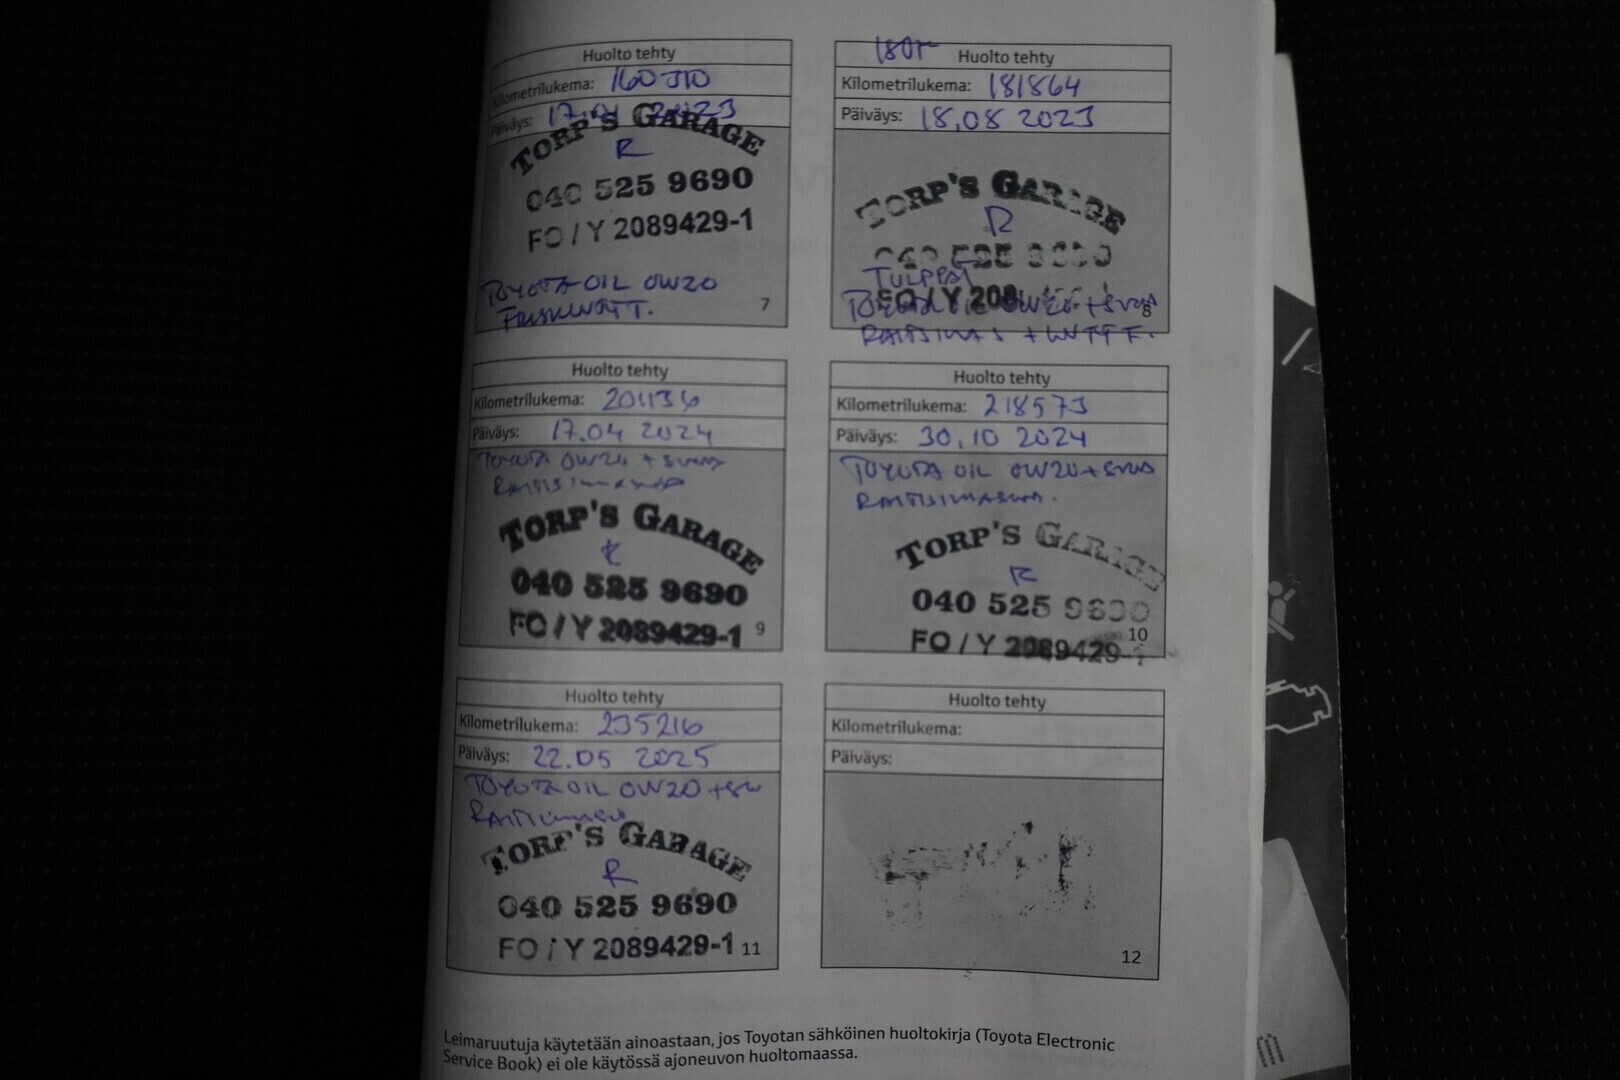 Huolto tehty
Kilometrilukema: 160
Päiväys: 2023
TORP'S GARAGE
R
040 525 9690
FO / Y 2089429-1
TOYOTA OIL 0W20
7
180T Huolto tehty
Kilometrilukema: 181864
Päiväys: 18.08 2023
TORP'S GARAGE
R
040 525
TULPPAT
FO / Y 208
8
Huolto tehty
Kilometrilukema: 201136
Päiväys: 17.04 2024
TOYOTA 0W20 +
TORP'S GARAGE
040 525 9690
FO / Y 2089429-1
9
Huolto tehty
Kilometrilukema: 218573
Päiväys: 30.10 2024
TOYOTA OIL 0W20+
TORP'S GARAGE
R
040 525 9690
FO / Y 2089429-1
10
Huolto tehty
Kilometrilukema: 235216
Päiväys: 22.05 2025
TOYOTA OIL 0W20 +
TORP'S GARAGE
R
040 525 9690
FO / Y 2089429-1
11
Huolto tehty
Kilometrilukema:
Päiväys:
12
Leimaruutuja käytetään ainoastaan, jos Toyotan sähköinen huoltokirja (Toyota Electronic
Service Book) ei ole käytössä ajoneuvon huoltomaassa.